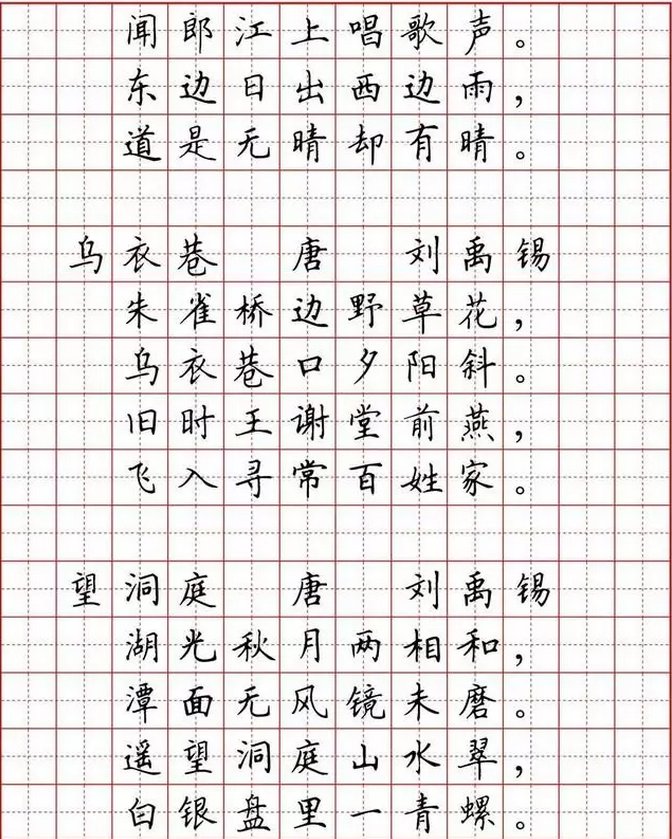 闻郎江上唱歌声。
东边日出西边雨，
道是无晴却有晴。
乌衣巷 唐 刘禹锡
朱雀桥边野草花，
乌衣巷口夕阳斜。
旧时王谢堂前燕，
飞入寻常百姓家。
望洞庭 唐 刘禹锡
湖光秋月两相和，
潭面无风镜未磨。
遥望洞庭山水翠，
白银盘里一青螺。